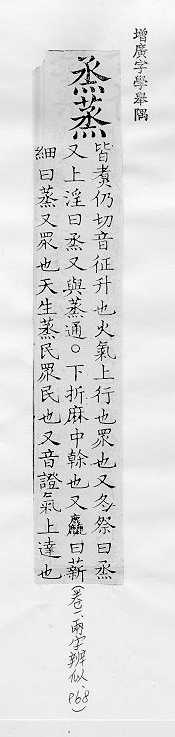 增廣字學舉隅
烝蒸
皆煑仍切音征升也火氣上行也眾也又冬祭曰烝
又上淫曰烝又與蒸通○下折麻中榦也又麤曰薪
細曰蒸又眾也天生蒸民眾民也又音證氣上達也
(卷二、兩字辨似、P68)